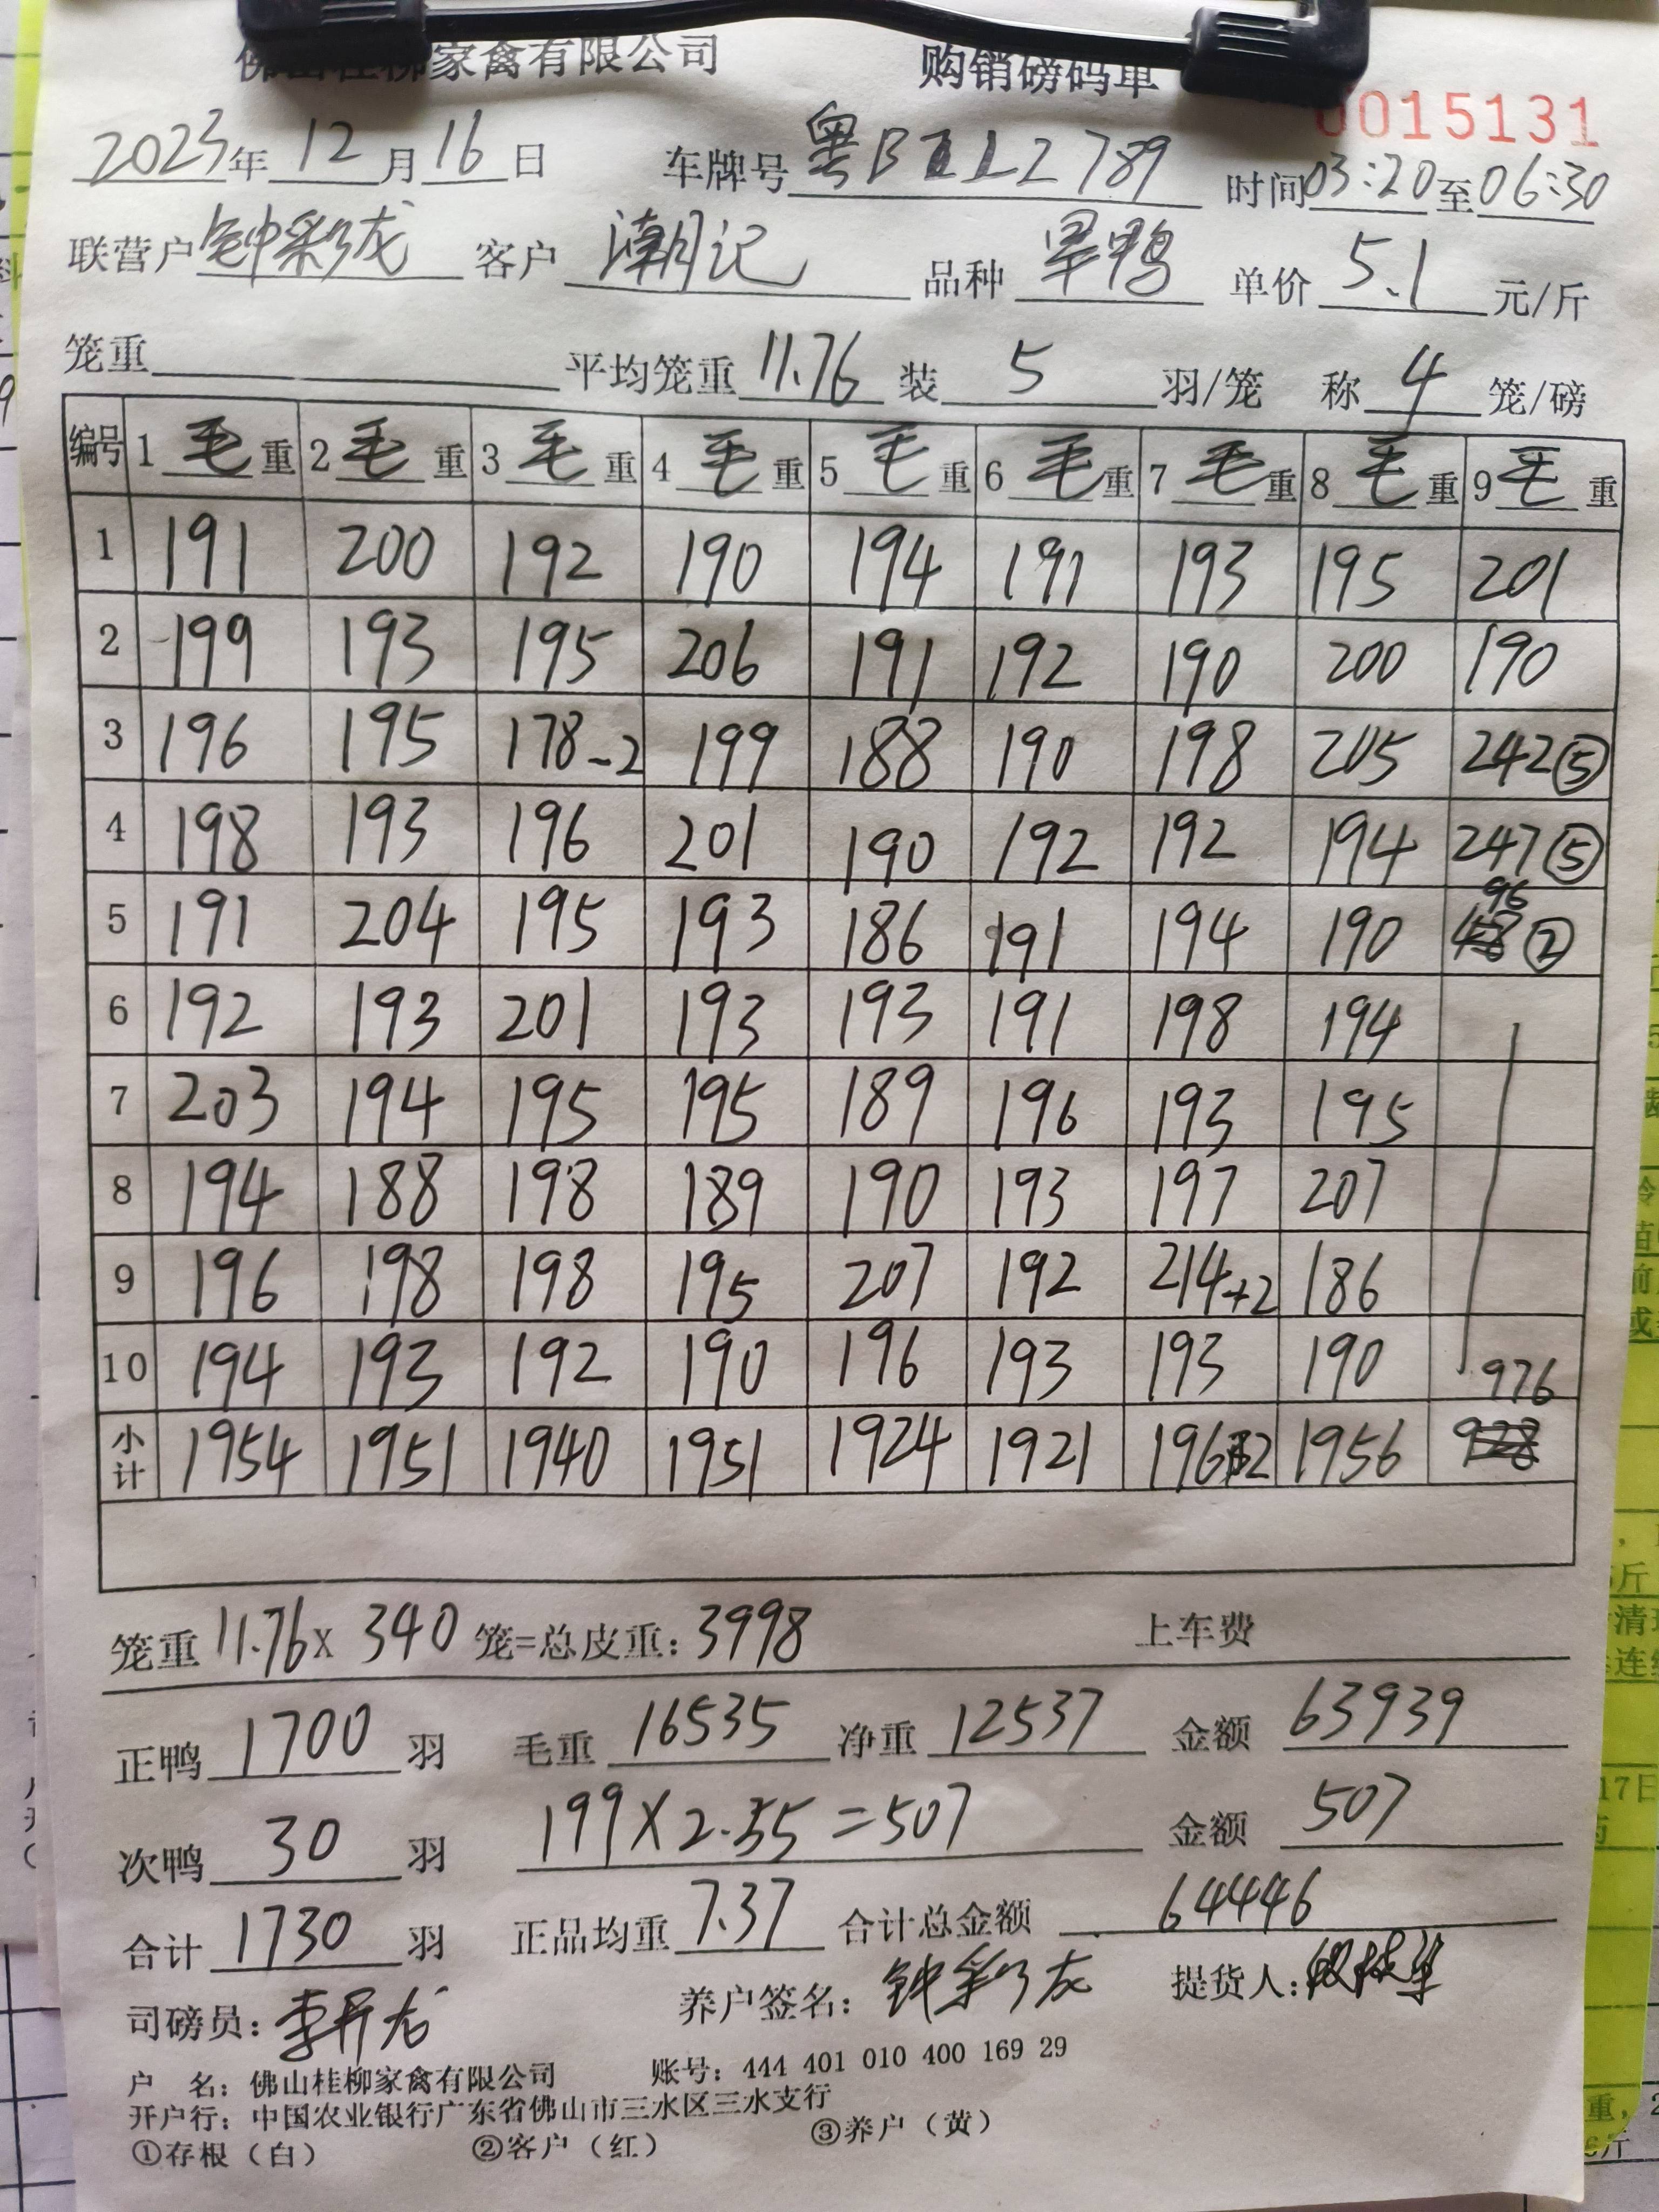 佛山桂柳家禽有限公司 购销磅码单
0015131
2023年 12 月 16 日 车牌号 时间 03:20 至 06:30
联营户 钟彩龙 客户 潮记 品种 旱鸭 单价 5.1 元/斤
笼重 平均笼重 11.76 装 5 羽/笼 称 4 笼/磅
编号 1 毛 重 2 毛 重 3 毛 重 4 毛 重 5 毛 重 6 毛 重 7 毛 重 8 毛 重 9 毛 重
1 191 200 192 190 194 191 193 195 201
2 199 193 195 206 191 192 190 200 190
3 196 195 178-2 199 188 190 198 205 242⑤
4 198 193 196 201 190 192 192 194 247⑤
5 191 204 195 193 186 191 194 190 96 ②
6 192 193 201 193 193 191 198 194
7 203 194 195 195 189 196 193 195
8 194 188 198 189 190 193 197 207
9 196 198 198 195 207 192 214+2 186
10 194 193 192 190 196 193 193 190 976
小计 1954 1951 1940 1951 1924 1921 1962 1956 928
笼重 11.76 x 340 笼=总皮重: 3998 上车费
正鸭 1700 羽 毛重 16535 净重 12537 金额 63939
次鸭 30 羽 199 X 2.55 = 507 金额 507
合计 1730 羽 正品均重 7.37 合计总金额 64446
司磅员: 养户签名: 钟彩龙 提货人:
户 名: 佛山桂柳家禽有限公司 账号: 444 401 010 400 169 29
开户行: 中国农业银行广东省佛山市三水区三水支行
①存根(白) ②客户(红) ③养户(黄)